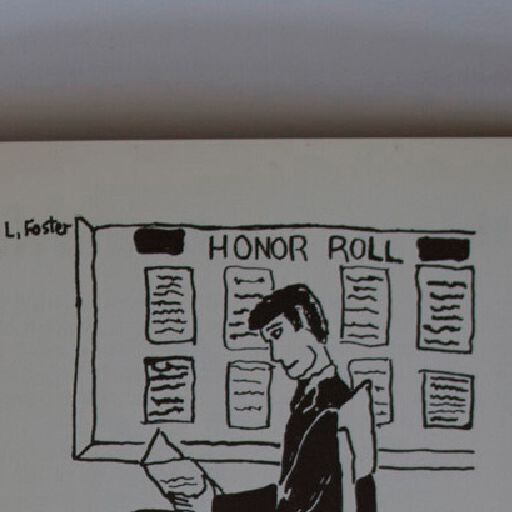 L. Foster
HONOR ROLL